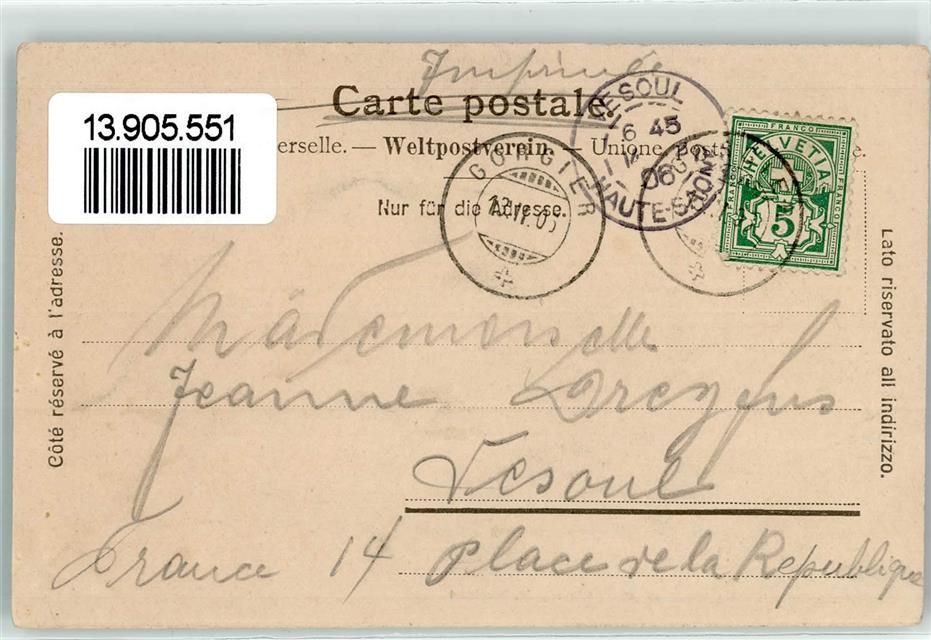 Imprimé
Carte postale.
13.905.551
erselle. — Weltpostverein. — Unione post e.
Nur für die Adresse.
GORGIER
VESOUL
6 45
06
HAUTE-SAONE
FRANCO
HELVETIA
FRANCO
FRANCO
5
Côté réservé à l'adresse.
Lato riservato all indirizzo.
Mademoiselle
Jeanne Dreyfus
Vesoul
France 14 Place de la Republique